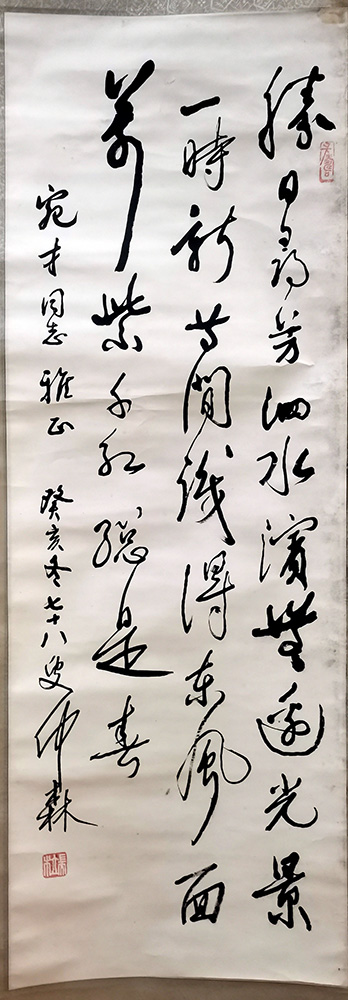 勝日尋芳泗水濱無邊光景
一時新等閒識得東風面
萬紫千紅總是春
宛才同志雅正 癸亥冬七十八叟仲森